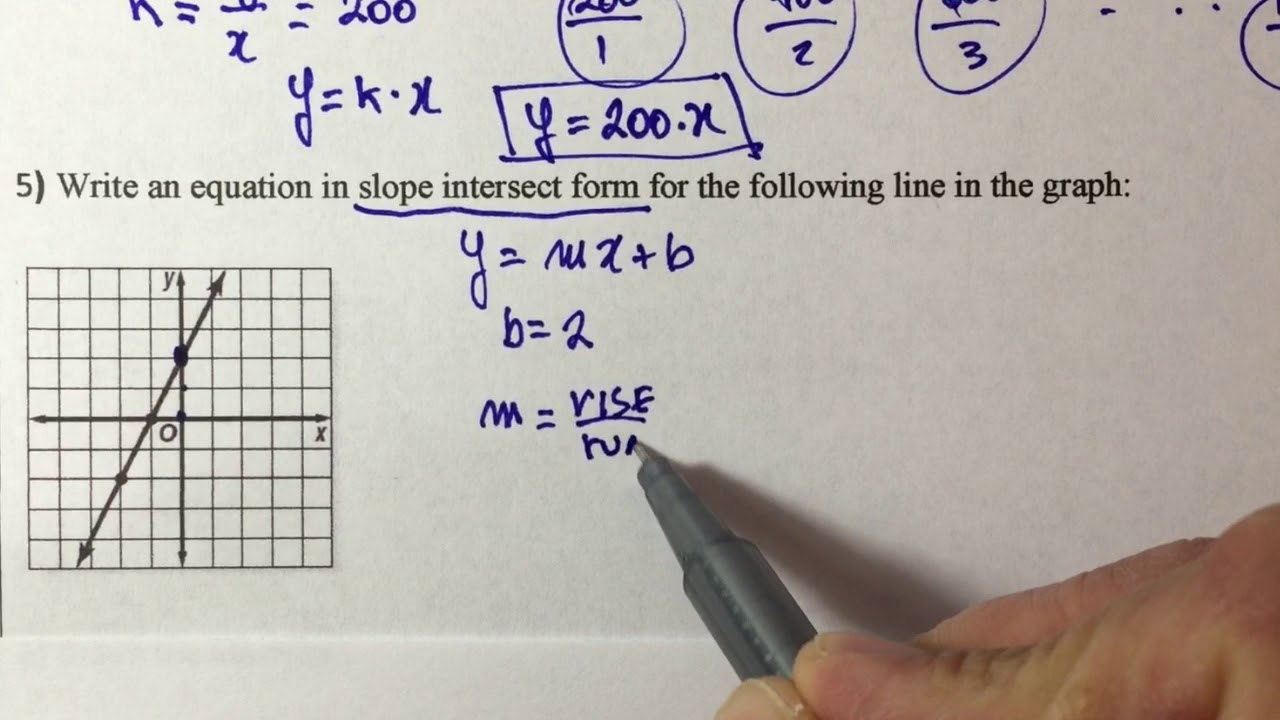 = 200
x
1 2 3
y = k · x
y = 200 · x
5) Write an equation in slope intersect form for the following line in the graph:
y = mx + b
y
b = 2
m = RISE
O x